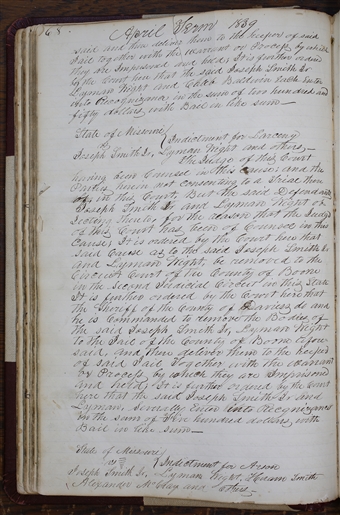 68.
April Term 1839
said and then deliver them to the keeper of said
Jail together with the warrant or Process by which
they are Imprisoned and held; It is further ordered
by the Court here that the said Joseph Smith Jr
Lyman Wight and Caleb Baldwin Each Enter
into Recognizance in the sum of two hundred and
fifty dollars with Bail in like sum—
State of Missouri
vs Indictment for Larceny
Joseph Smith Jr, Lyman Wight and others—
The Judge of this Court
having been Counsel in this Cause and the
Parties herein not consenting to a Trial
in this Court, But the said Defendants
Joseph Smith Jr and Lyman Wight
for the reason that the Judge
of this Court has been of Counsel in this
Cause; It is ordered by the Court here that
said Cause as to the said Joseph Smith Jr
and Lyman Wight, be removed to the
Circuit Court of the County of Boone
in the Second Judicial Circuit in this State
It is further ordered by the Court here that
the Sheriff of the County of Daviess do and
he is Commanded to remove the Bodies of
the said Joseph Smith Jr, Lyman Wight
to the Jail of the County of Boone afore-
said, and there deliver them to the keeper
of said Jail Together with the warrant
or Process by which they are Imprisoned
and held; It is further ordered by the Court
here that the said Joseph Smith Jr and
Lyman, severally Enter into Recognizance
in the sum of Five hundred dollars, with
Bail in like sum—
State of Missouri
vs Indictment for Arson
Joseph Smith Jr, Lyman Wight, Hiram Smith
Alexander McRay and others—